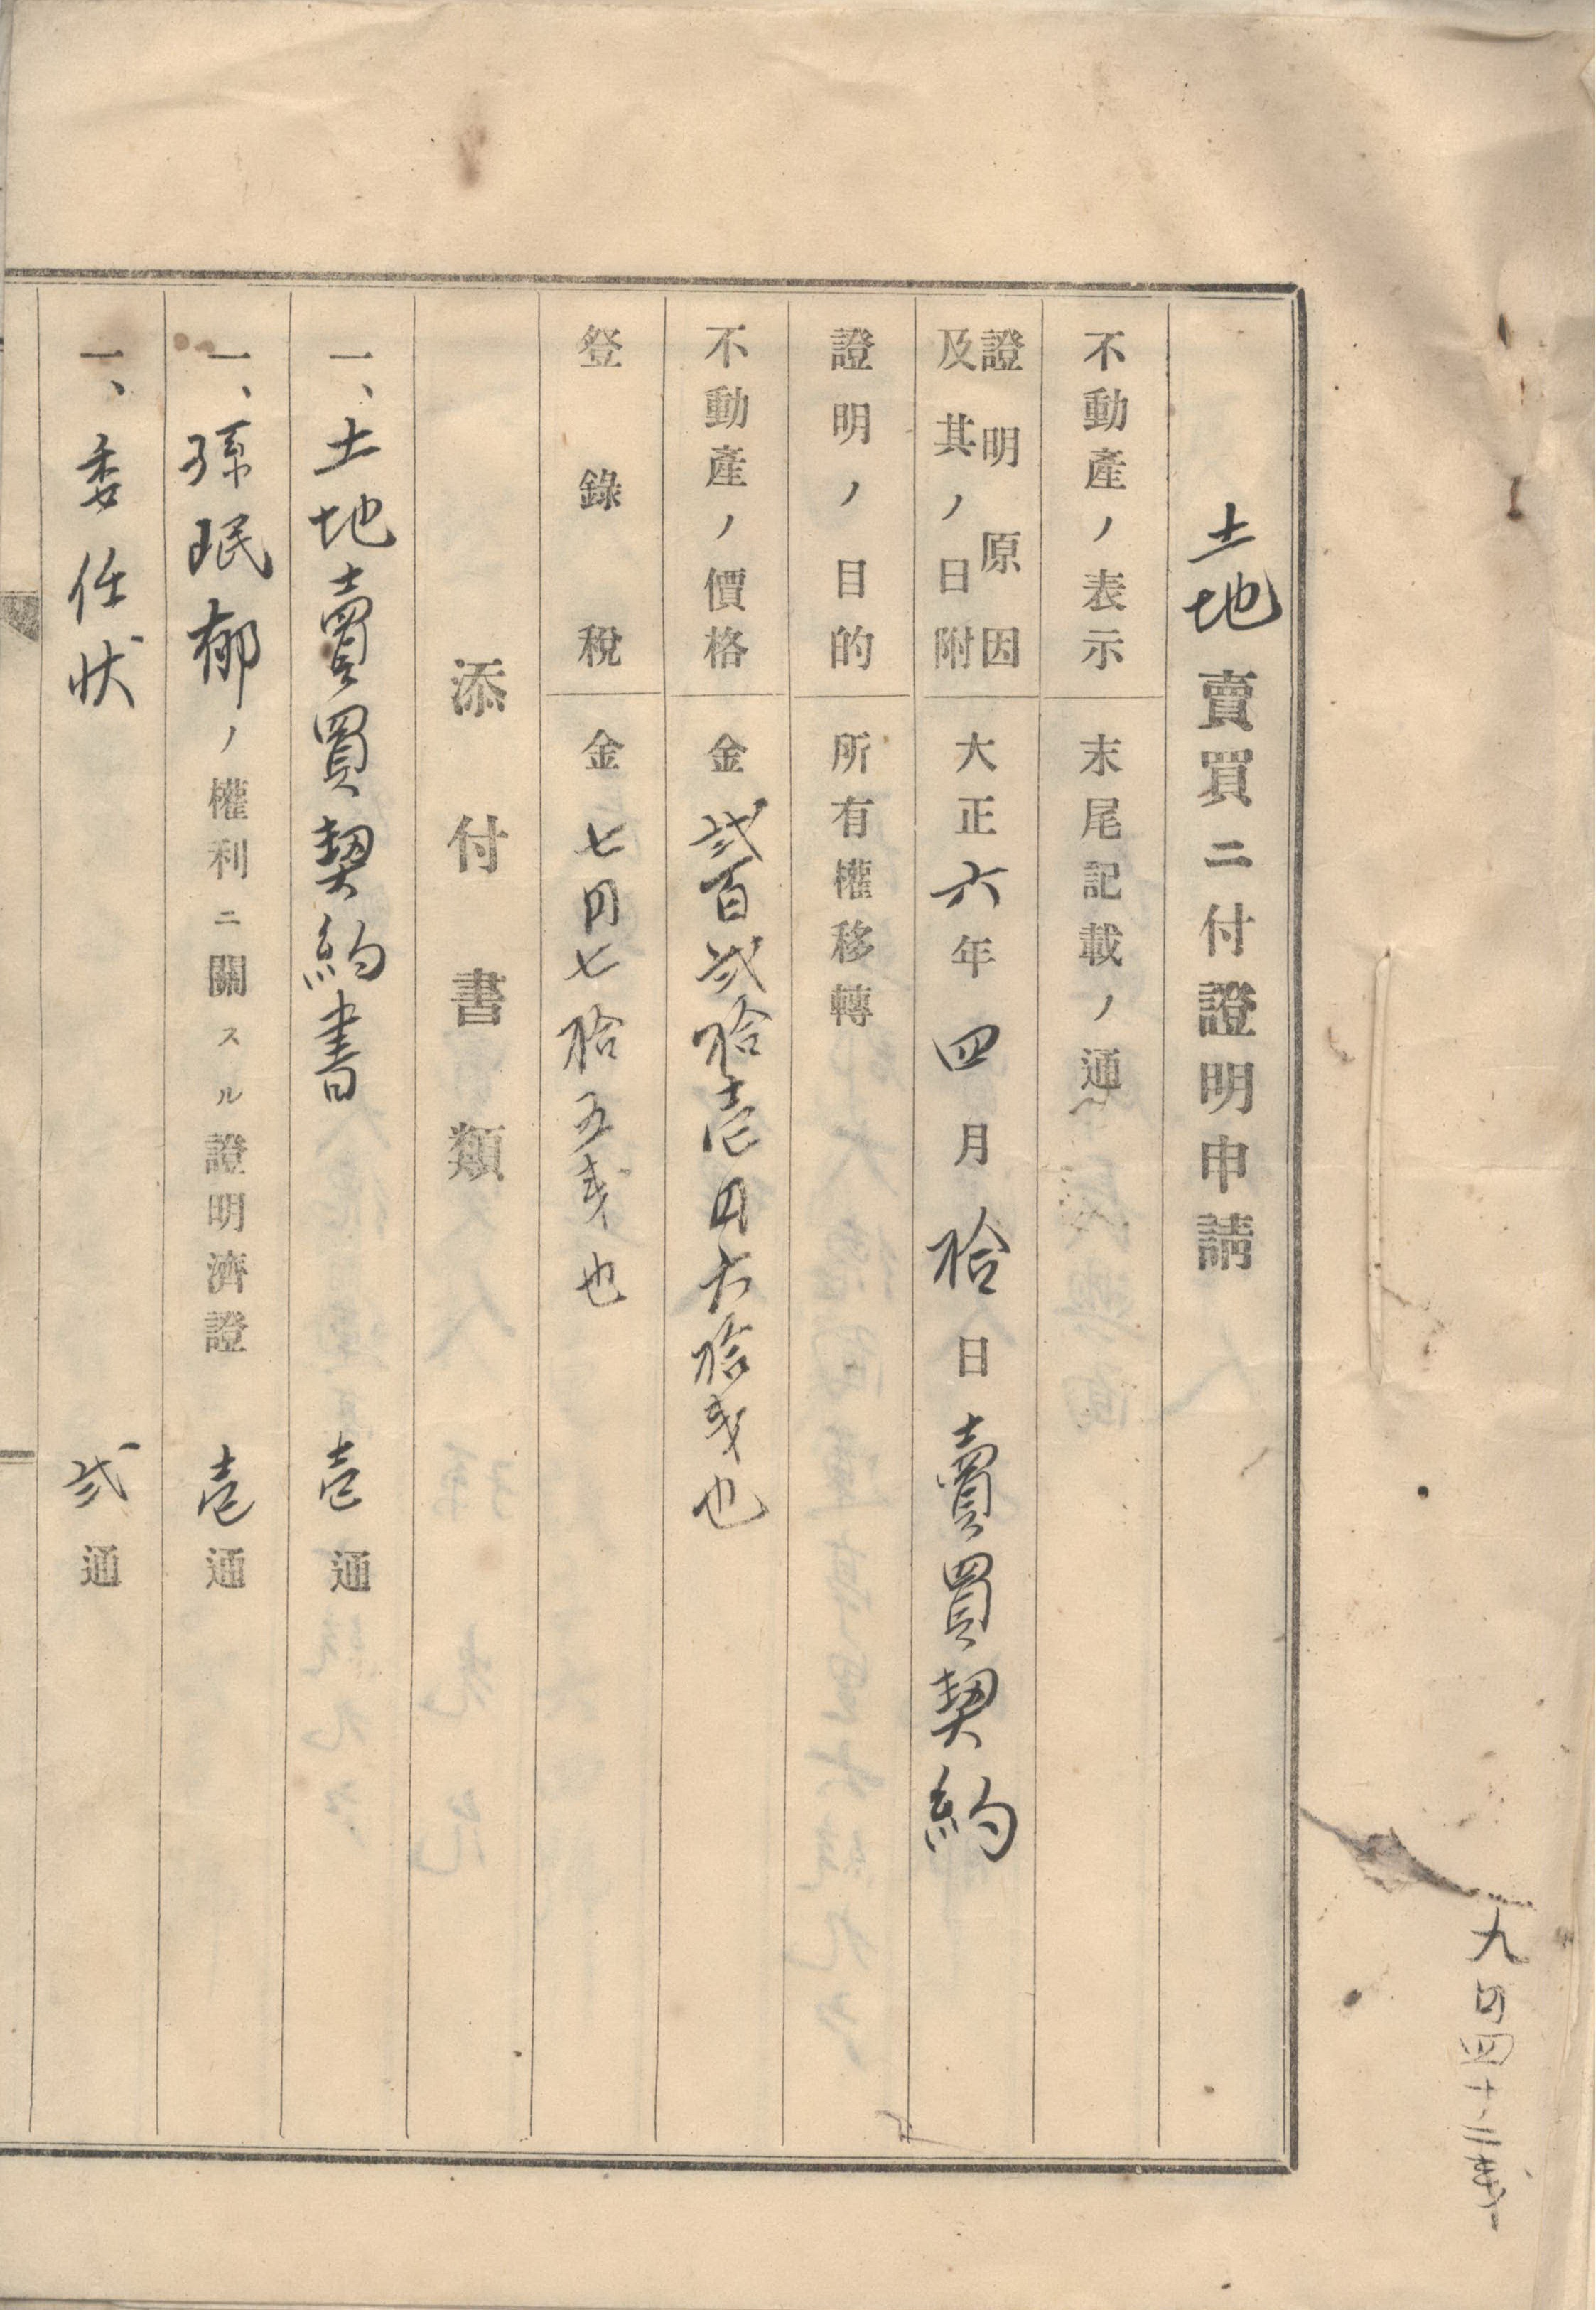 九円四十二戋
土地賣買ニ付證明申請
不動產ノ表示 末尾記載ノ通
證明原因及其ノ日附 大正六年四月拾日賣買契約
證明ノ目的 所有權移轉
不動產ノ價格 金貳百貳拾壱円六拾戋也
登錄稅 金七円七拾五戋也
添付書類
一、土地賣買契約書 壱通
一、孫珉郁ノ權利ニ關スル證明濟證 壱通
一、委任狀 貳通